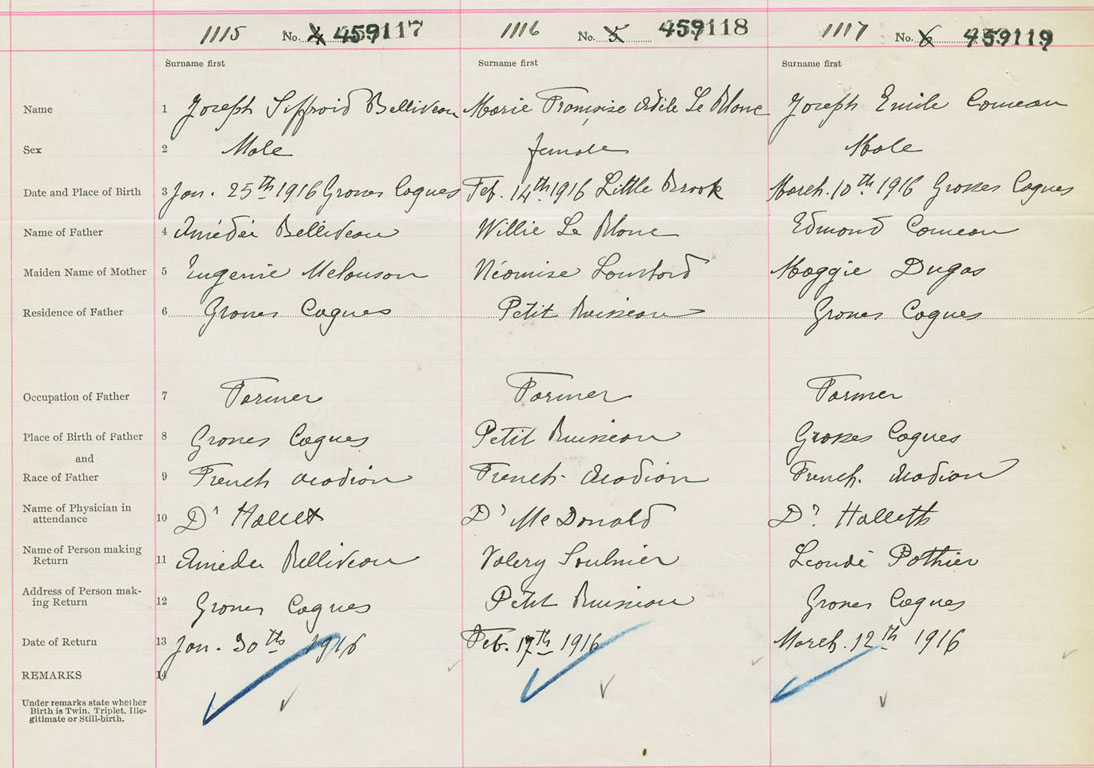 1115 No. 4 459117 1116 No. 5 459118 1117 No. 6 459119
Surname first Surname first Surname first
Name 1 Joseph Siffroid Belliveau Marie Françoise Adèle Le Blanc Joseph Emile Comeau
Sex 2 Male female Male
Date and Place of Birth 3 Jan. 25th 1916 Grosses Coques Feb. 14th 1916 Little Brook March. 10th 1916 Grosses Coques
Name of Father 4 Amédée Belliveau Willie Le Blanc Edmond Comeau
Maiden Name of Mother 5 Eugenie Melanson Néomise Maggie Dugas
Residence of Father 6 Grosses Coques Petit Ruisseau Grosses Coques
Occupation of Father 7 Farmer Farmer Farmer
Place of Birth of Father 8 Grosses Coques Petit Ruisseau Grosses Coques
and
Race of Father 9 French Acadian French Acadian French. Acadian
Name of Physician in
attendance 10 Dr Hallet Dr McDonald Dr. Halleth
Name of Person making
Return 11 Amédée Belliveau Valery Soulnier Leondé Pothier
Address of Person mak-
ing Return 12 Grosses Coques Petit Ruisseau Grosses Coques
Date of Return 13 Jan. 30th 1916 Feb. 17th 1916 March. 12th 1916
REMARKS 14
Under remarks state whether
Birth is Twin, Triplet, Ille-
gitimate or Still-birth.